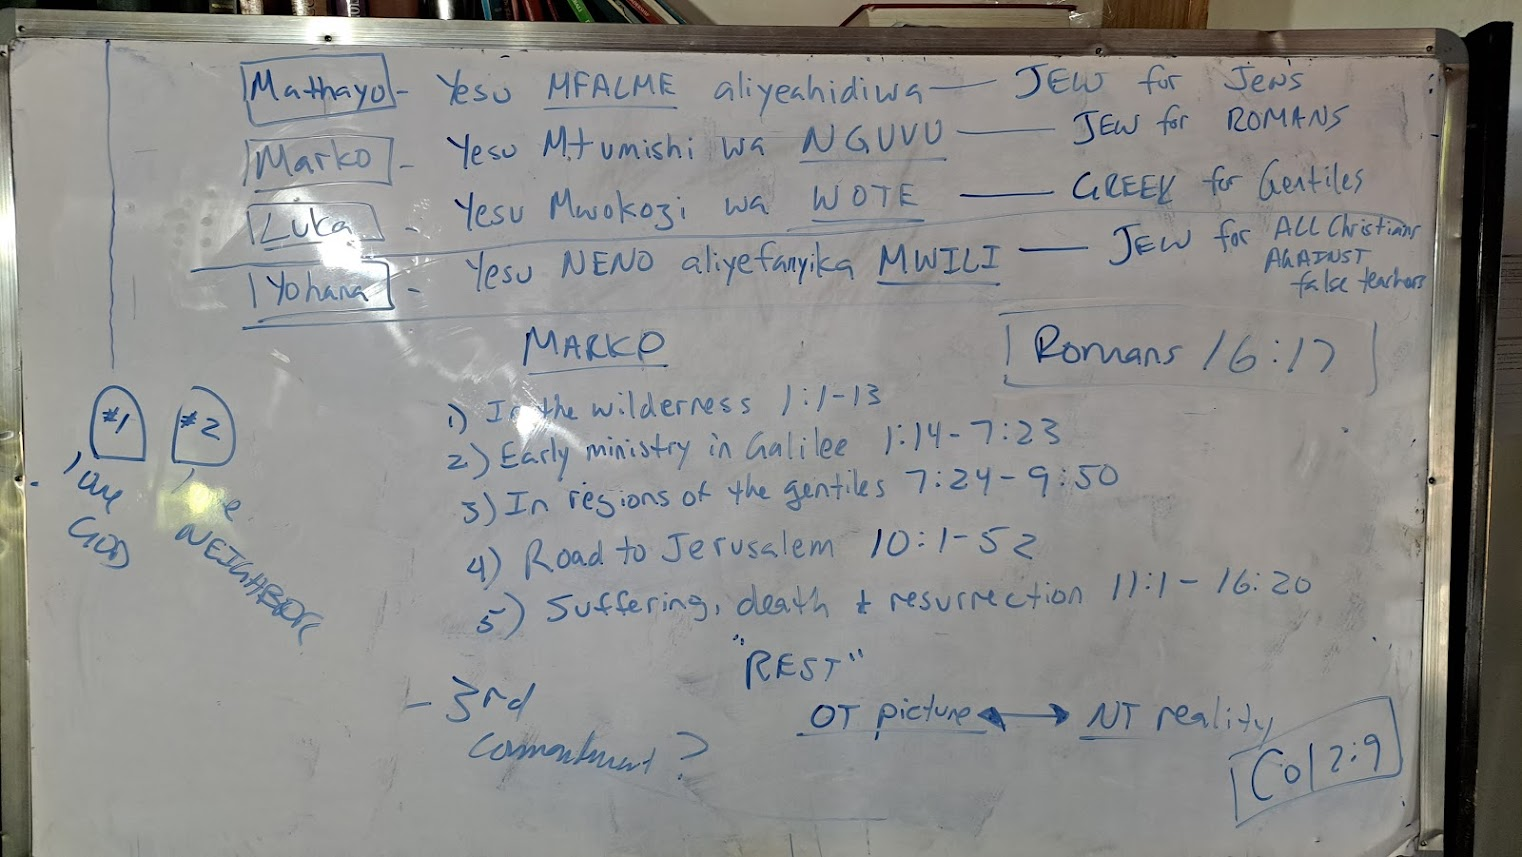 Mathayo - Yesu MFALME aliyeahidiwa — JEW for Jews
Marko - Yesu Mtumishi wa NGUVU — JEW for ROMANS
Luka - Yesu Mwokozi wa WOTE — GREEK for Gentiles
Yohana - Yesu NENO aliyefanyika MWILI — JEW for ALL Christians
AGAINST
false teachers
MARKO
Romans 16:17
1) In the wilderness 1:1-13
2) Early ministry in Galilee 1:14-7:23
3) In regions of the gentiles 7:24-9:50
4) Road to Jerusalem 10:1-52
5) Suffering, death + resurrection 11:1-16:20
#1 #2
love
GOD
love
NEIGHBOR
"REST"
OT picture ↔ NT reality
- 3rd
commandment?
Col 2:9